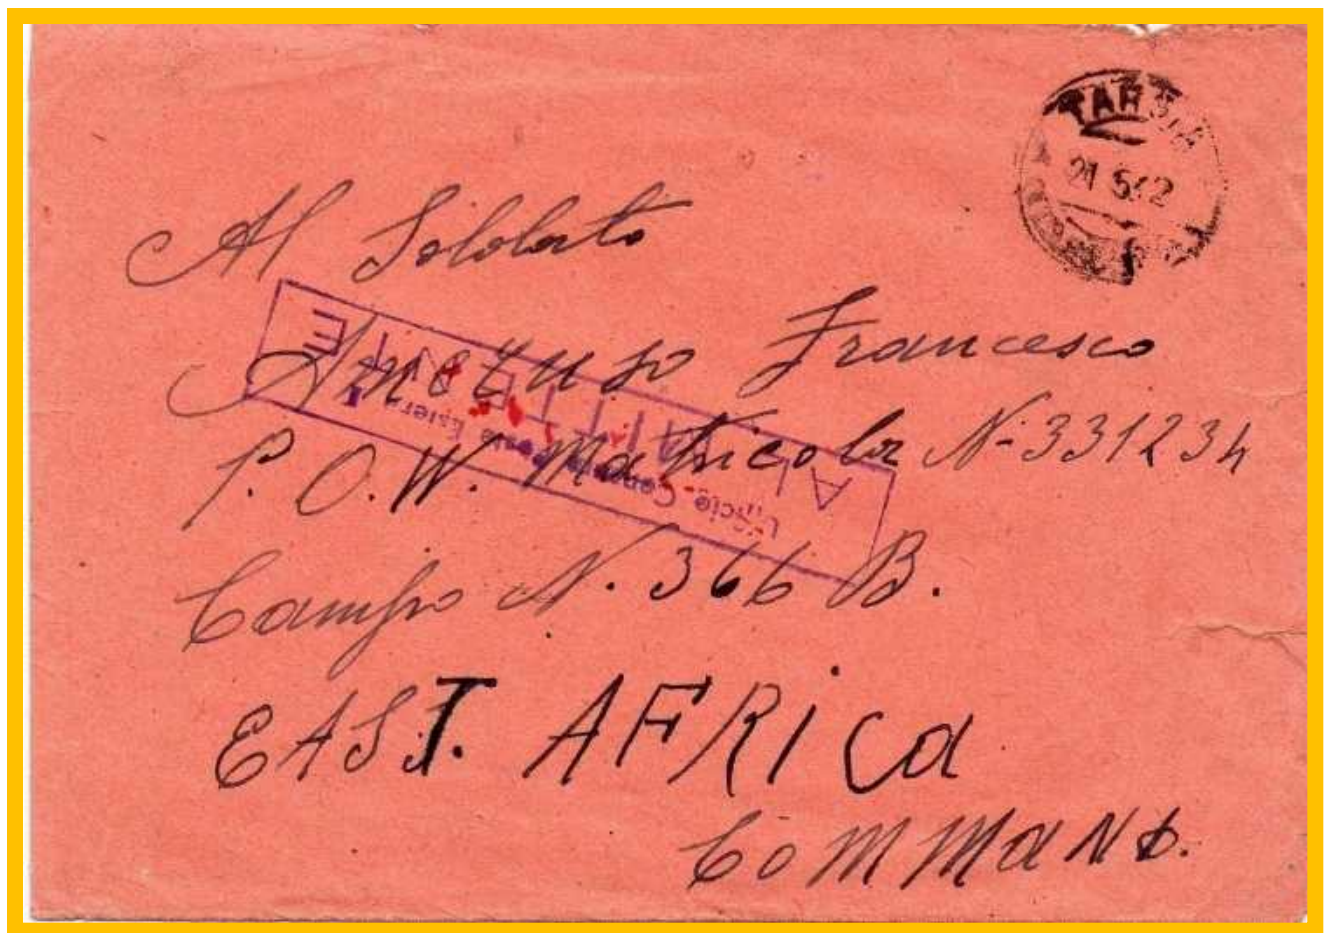 TARSIA
21 5 42
Al Soldato
Francesco
P. O. W. Matricola N- 331234
Campo N. 366 B.
EAST. AFRiCa
CoMMaND.
AL MITTENTE
Ufficio Posta Estera